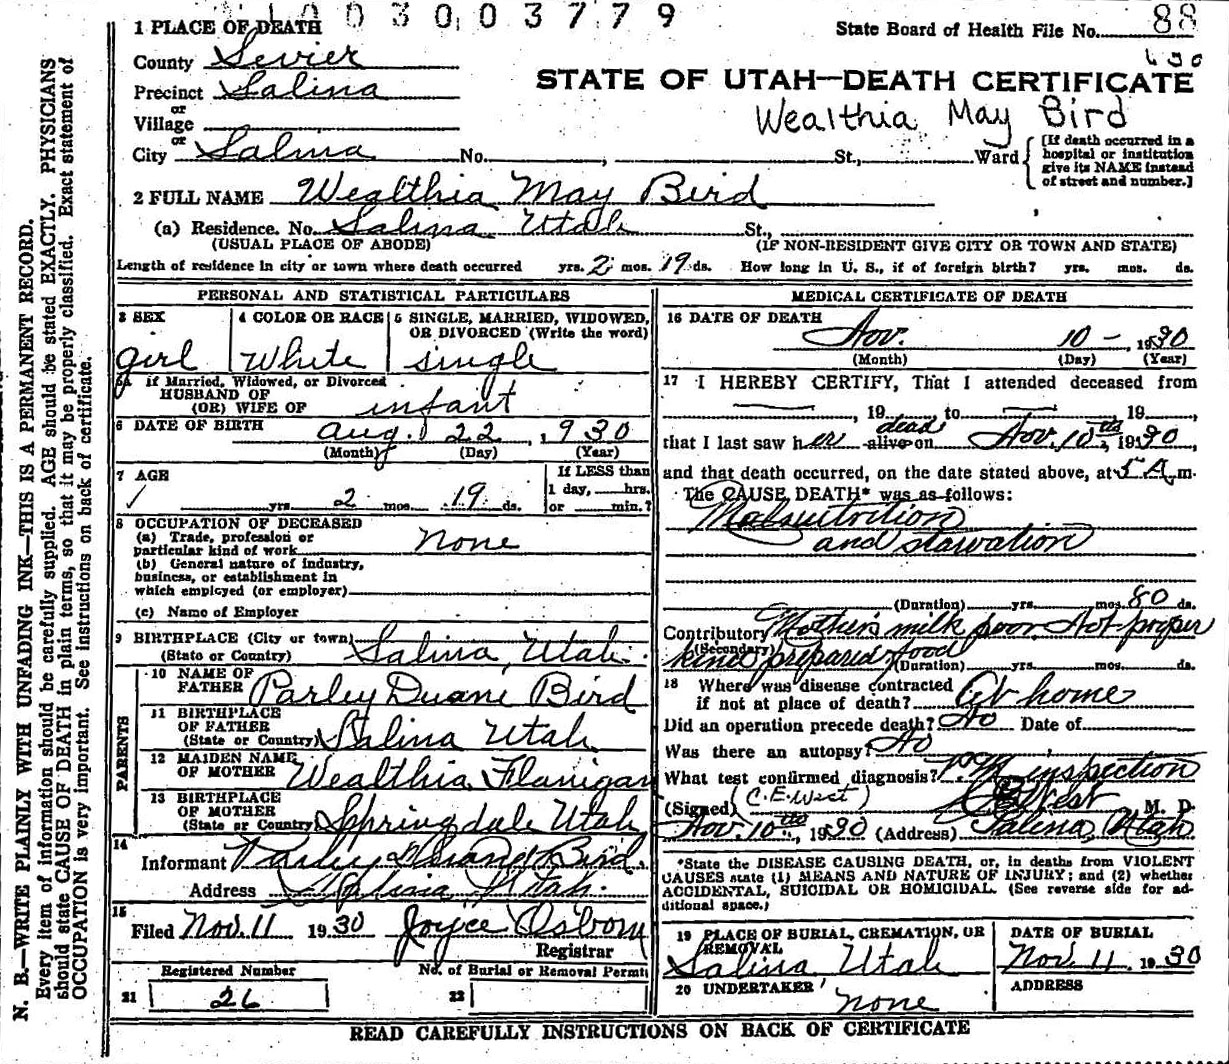 1003003779
1 PLACE OF DEATH
State Board of Health File No. 88
County Sevier
630
STATE OF UTAH—DEATH CERTIFICATE
Precinct Salina
or
Village
Wealthia May Bird
or
City Salina No. , St., Ward
[If death occurred in a
hospital or institution
give its NAME instead
of street and number.]
2 FULL NAME Wealthia May Bird
(a) Residence. No. Salina Utah St.,
(USUAL PLACE OF ABODE) (IF NON-RESIDENT GIVE CITY OR TOWN AND STATE)
Length of residence in city or town where death occurred yrs. 2 mos. 19 ds. How long in U. S., if of foreign birth? yrs. mos. ds.
PERSONAL AND STATISTICAL PARTICULARS
3 SEX
girl
4 COLOR OR RACE
White
5 SINGLE, MARRIED, WIDOWED,
OR DIVORCED (Write the word)
single
5a if Married, Widowed, or Divorced
HUSBAND OF
(OR) WIFE OF infant
6 DATE OF BIRTH Aug. 22, 1930
(Month) (Day) (Year)
7 AGE
yrs. 2 mos. 19 ds.
If LESS than
1 day, hrs.
or min.?
8 OCCUPATION OF DECEASED
(a) Trade, profession or
particular kind of work None
(b) General nature of industry,
business, or establishment in
which employed (or employer)
(c) Name of Employer
9 BIRTHPLACE (City or town)
(State or Country) Salina, Utah.
PARENTS
10 NAME OF
FATHER Parley Duane Bird
11 BIRTHPLACE
OF FATHER
(State or Country) Salina Utah
12 MAIDEN NAME
OF MOTHER Wealthia Flanigan
13 BIRTHPLACE
OF MOTHER
(State or Country) Springdale Utah
14
Informant Parley Duane Bird
Address Salina Utah.
15
Filed Nov. 11 1930 Joyce Osborn
Registrar
Registered Number
21 26
No. of Burial or Removal Permit
22
MEDICAL CERTIFICATE OF DEATH
16 DATE OF DEATH
Nov. 10 - 1930
(Month) (Day) (Year)
17 I HEREBY CERTIFY, That I attended deceased from
, 19 , to , 19 ,
dead
that I last saw her alive on Nov. 10th, 1930,
and that death occurred, on the date stated above, at 5 A.m.
The CAUSE DEATH* was as follows:
Malnutrition
and starvation
(Duration) yrs. mos. 80 ds.
Contributory Mother's milk poor. Not proper
(Secondary)
kind prepared food
(Duration) yrs. mos. ds.
18 Where was disease contracted
if not at place of death? At home
Did an operation precede death? No Date of
Was there an autopsy? No
What test confirmed diagnosis? inspection
(C.E. West)
(Signed) C E West M. D.
Nov. 10th, 1930 (Address) Salina, Utah
*State the DISEASE CAUSING DEATH, or, in deaths from VIOLENT
CAUSES state (1) MEANS AND NATURE OF INJURY; and (2) whether
ACCIDENTAL, SUICIDAL OR HOMICIDAL. (See reverse side for ad-
ditional space.)
19 PLACE OF BURIAL, CREMATION, OR
REMOVAL
Salina Utah
DATE OF BURIAL
Nov. 11. 1930
20 UNDERTAKER
none
ADDRESS
READ CAREFULLY INSTRUCTIONS ON BACK OF CERTIFICATE
N. B.—WRITE PLAINLY WITH UNFADING INK—THIS IS A PERMANENT RECORD.
Every item of information should be carefully supplied. AGE should be stated EXACTLY. PHYSICIANS
should state CAUSE OF DEATH in plain terms, so that it may be properly classified. Exact statement of
OCCUPATION is very important. See instructions on back of certificate.